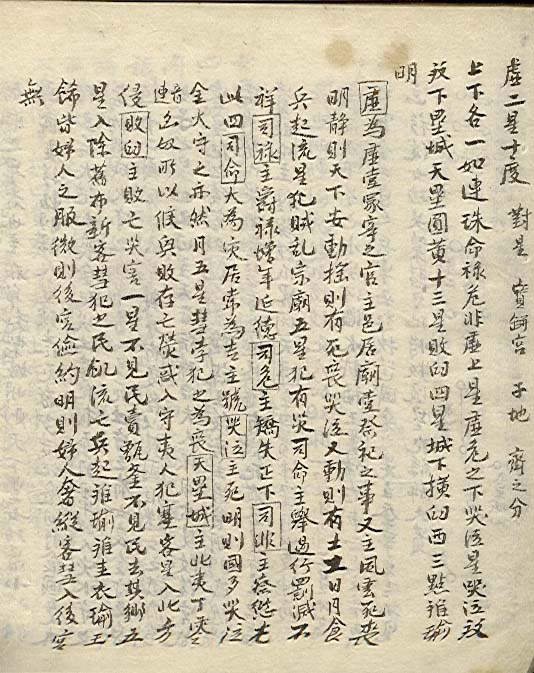 虛二星十度 對星 寶餠宮 子地 齊之分
上下各一如連珠命祿危非虛上星虛危之下哭泣星哭泣双
双下壘城天壘圓黃十三星敗臼四星城下橫臼西三點離瑜
明
虛為虛堂冢宰之官主邑居廟堂祭祀之事又主風雲死喪
明静則天下安動搖則有死喪哭泣又動則有土工日月食
兵起流星犯賊乱宗廟五星犯有災司命主擧過行罰滅不
祥司祿主爵祿增年延德司危主矯失正下司非主
此四司命大為灾居常為吉主號哭泣主死明則國多哭泣
金火守之亦然月五星彗孛犯之為喪天壘城主北夷丁零
匈奴所以候興敗存亡熒惑入守夷人犯塞客星入北方
侵敗臼主敗亡災害一星不見民賣甑釜不見民去其鄉五
星入除舊布新客彗犯之民飢流亡兵起離瑜離圭衣瑜玉
飾皆婦人之服微則後宮儉約明則婦人奢縱客彗入後宮
無